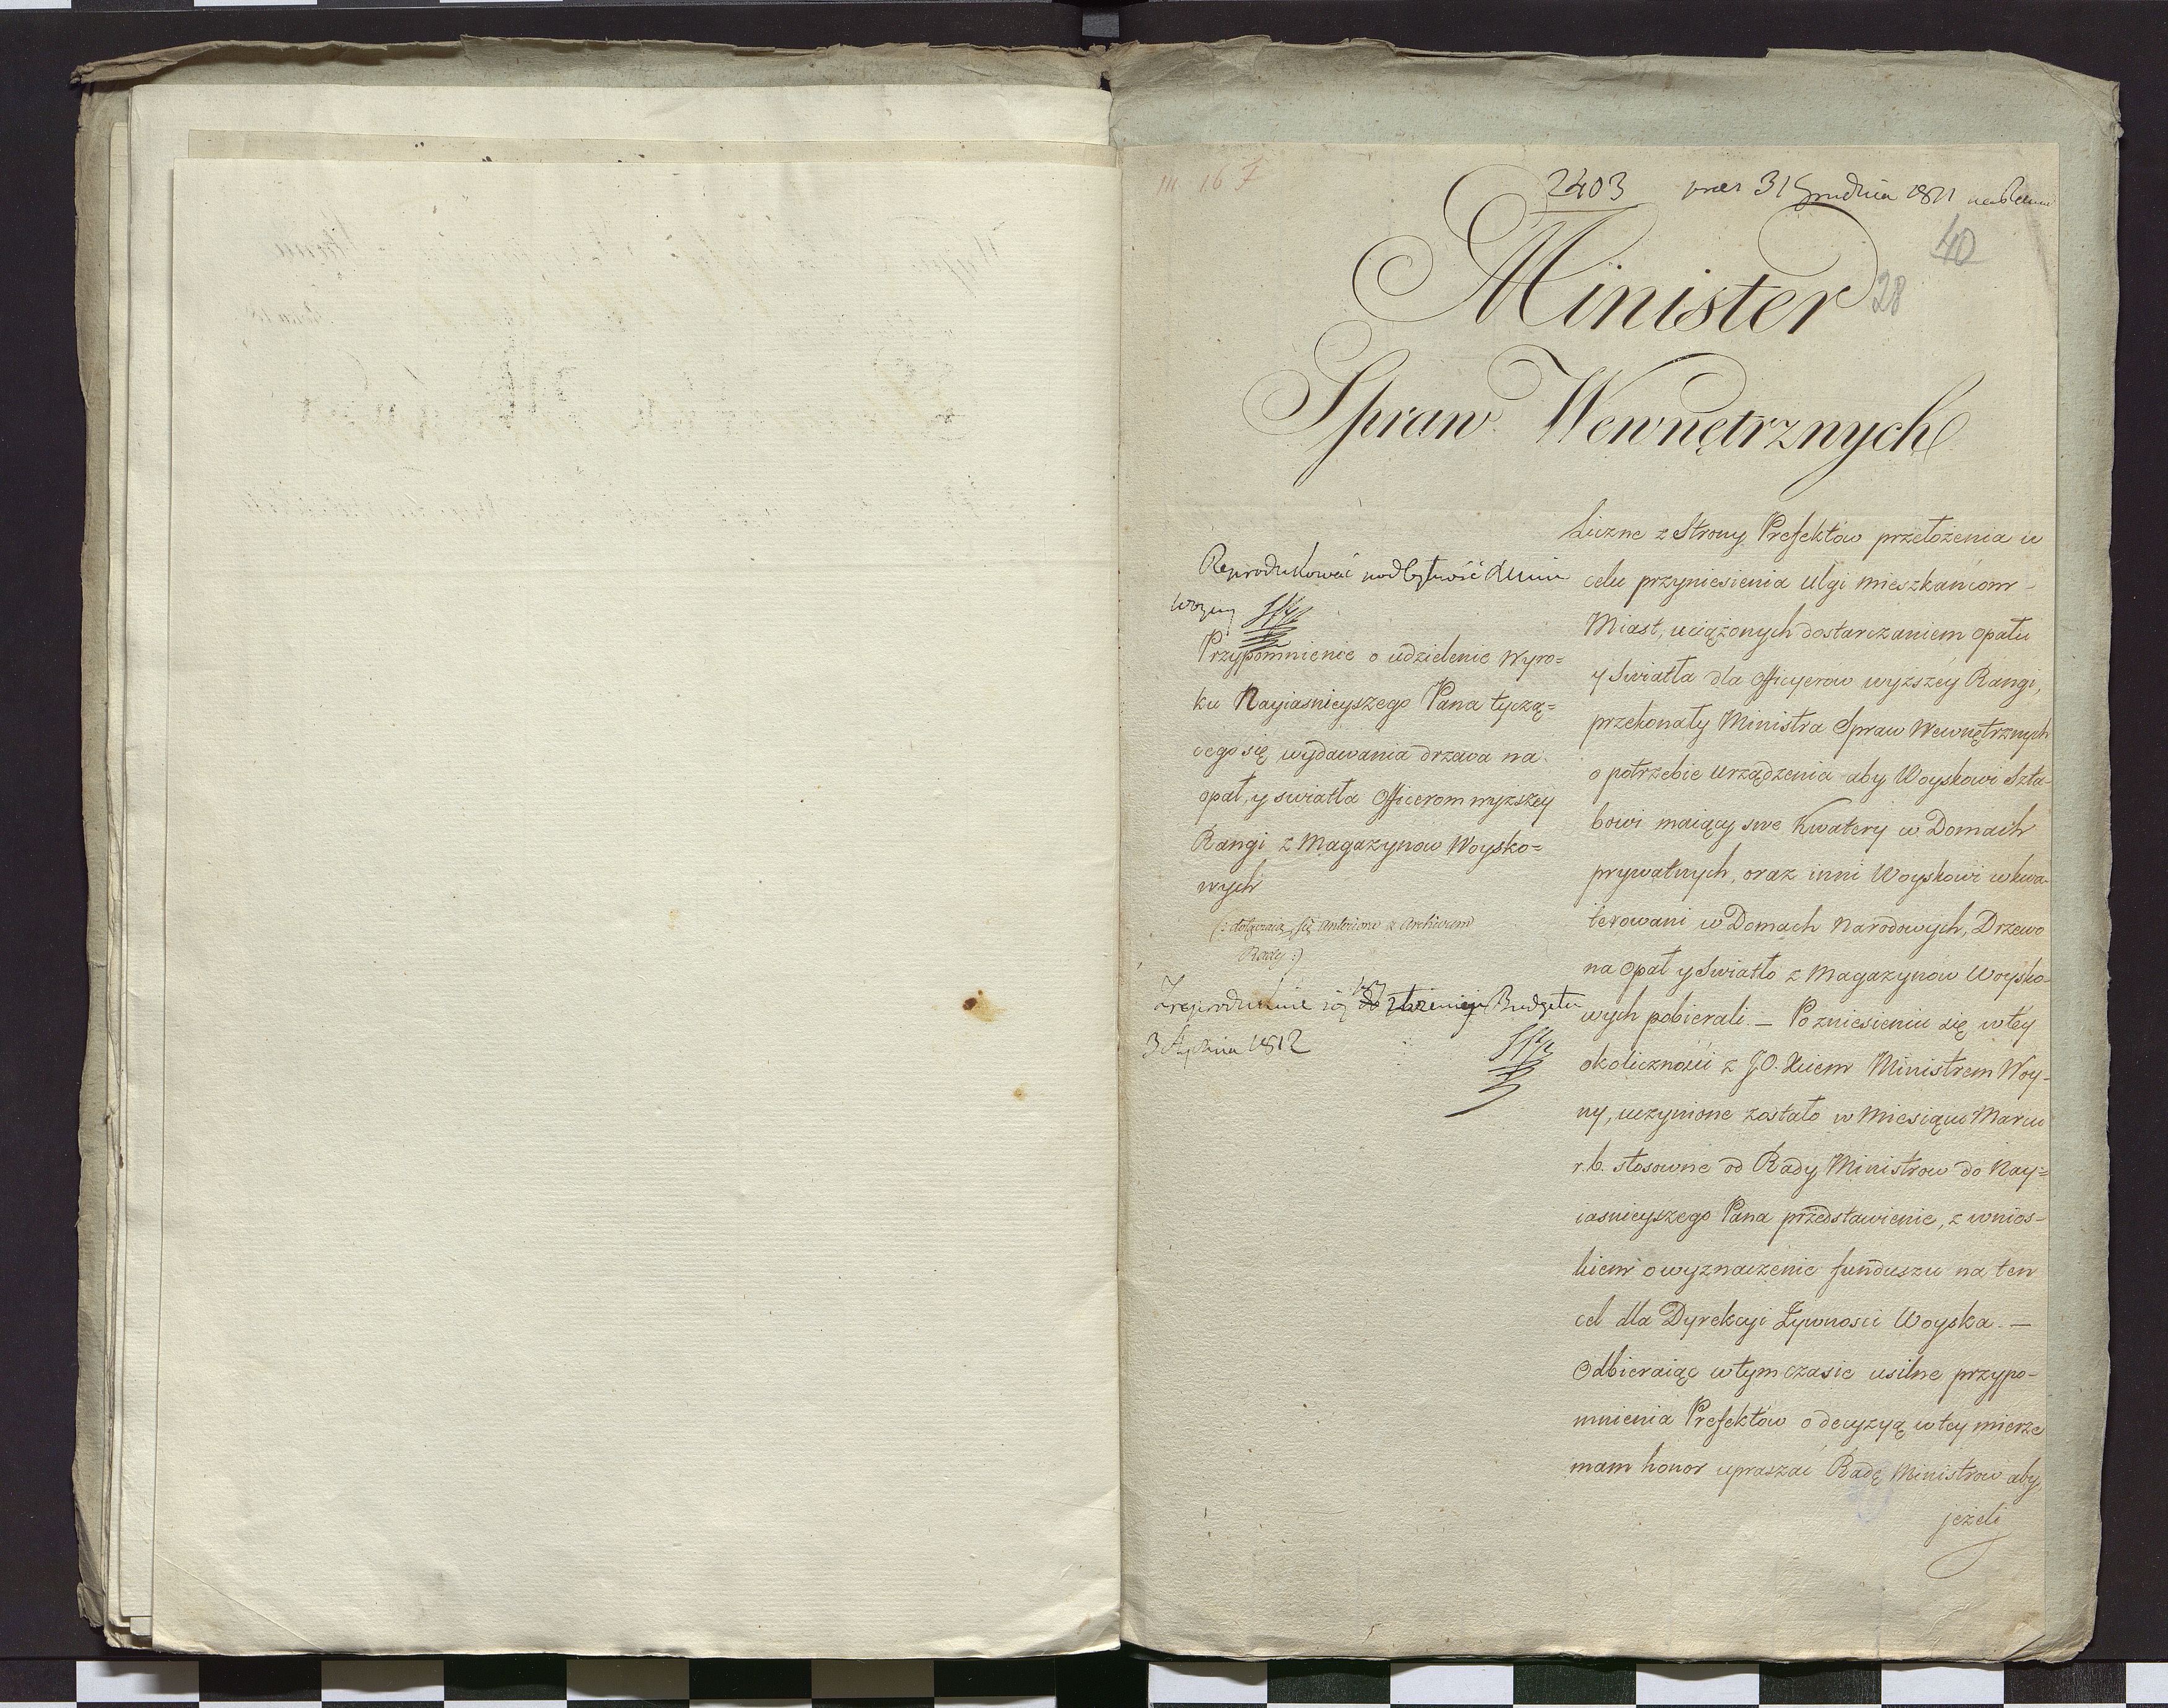 2403 31 Grudnia 1811
40
28
Minister
Spraw Wewnętrznych
Reprodukować
Woyny
Przypomnienie o udzielenie Wyro=
ku Nayiasnieyszego Pana tyczą=
cego się wydawania drzewa na
opał, y swiatła Officerom wyższey
Rangi z Magazynow Woysko=
wych
(: dołączaią się anteriora z Archiwum
Rady :)
Budżetu
3 Stycznia 1812
Liczne z Strony Prefektów przełożenia w
celu przyniesienia ulgi mieszkańcom
Miast, uciążonych dostarczaniem opału
y Swiatła dla Officyerow wyższey Rangi,
przekonały Ministra Spraw Wewnętrznych
o potrzebie urządzenia aby Woyskowi Szta-
bowi maiący swe Kwatery w Domach
prywatnych, oraz inni Woyskowi wkwa-
terowani w Domach Narodowych, Drzewo
na Opał y Swiatło z Magazynow Woysko-
wych pobierali. — Po zniesieniu się w tey
okoliczności z J.O. Xciem Ministrem Woy-
ny, uczynione zostało w Miesiącu Marcu
r. b. stosowne od Rady Ministrow do Nay=
iasnieyszego Pana przedstawienie, z wnios-
kiem o wyznaczenie funduszu na ten
cel dla Dyrekcyi Żywnosci Woyska. —
Odbieraiąc w tym czasie usilne przypo-
mnienia Prefektów o decyzyą w tey mierze
mam honor upraszać Radę Ministrow aby,
jeżeli